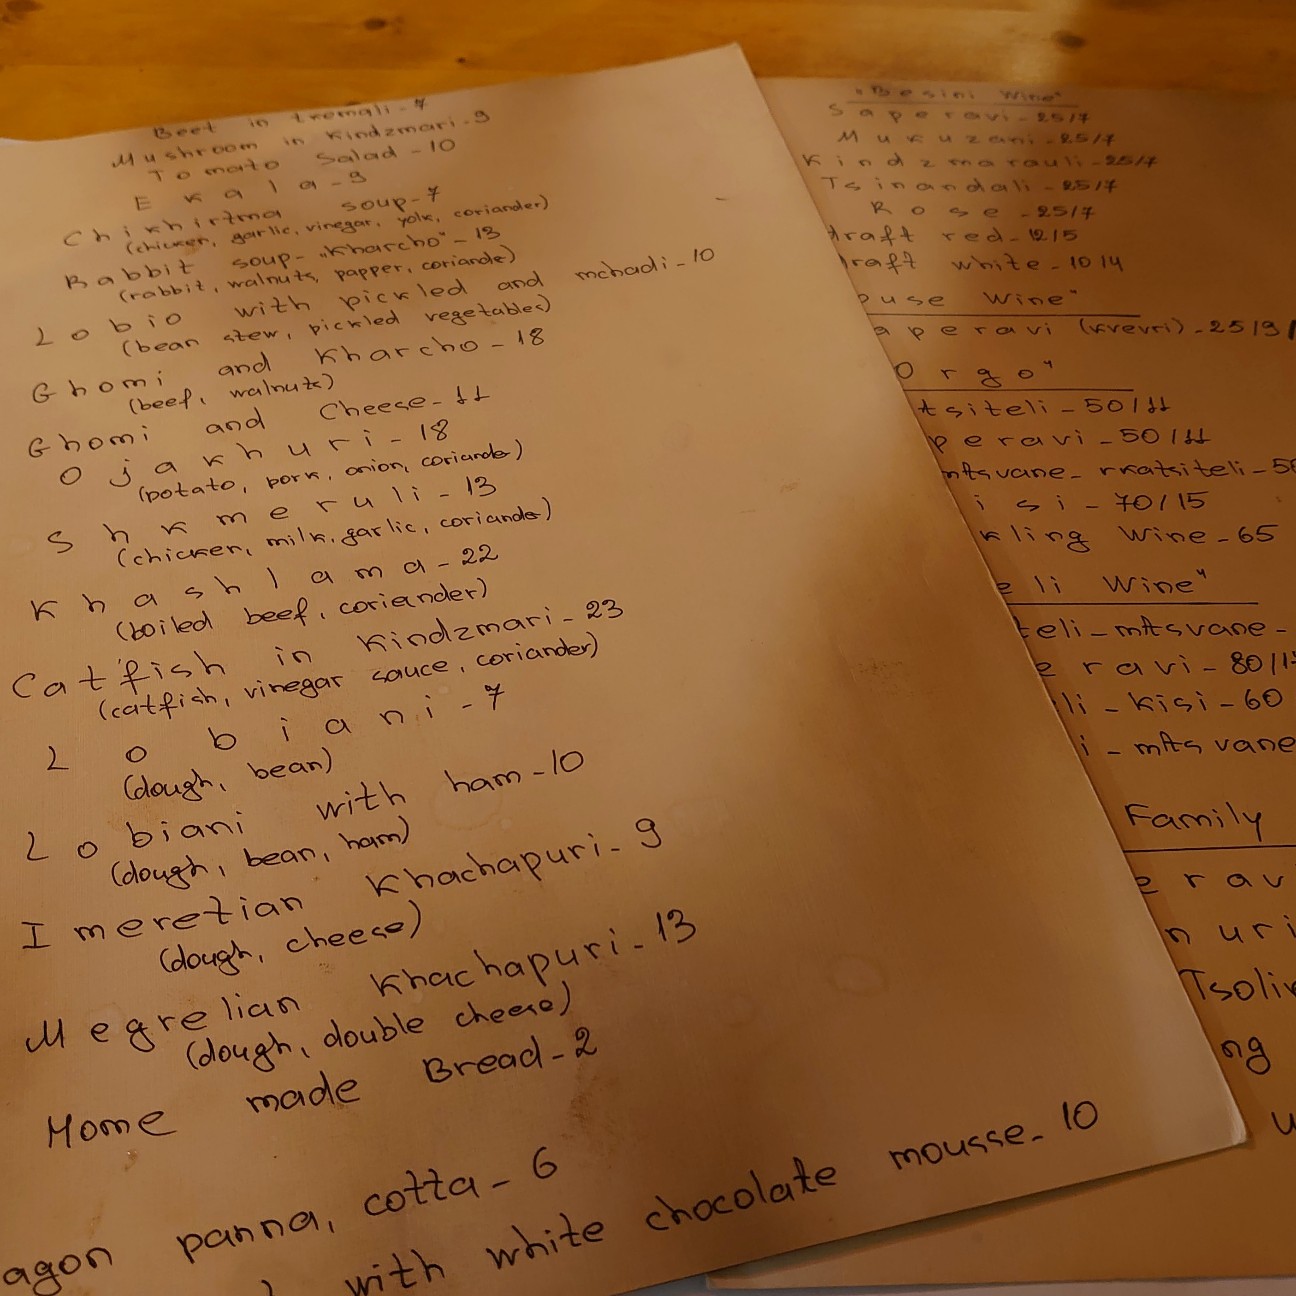 Beet in tkemali - 7
Mushroom in Kindzmari - 9
Tomato Salad - 10
Ekala - 9
Chikhirtma soup - 7
(chicken, garlic, vinegar, yolk, coriander)
Rabbit soup - „Kharcho" - 13
(rabbit, walnuts, papper, coriande)
Lobio with pickled and mchadi - 10
(bean stew, pickled vegetables)
Ghomi and Kharcho - 18
(beef, walnuts)
Ghomi and Cheese - 11
Ojakhuri - 18
(potato, pork, onion, coriander)
Shkmeruli - 13
(chicken, milk, garlic, coriander)
Khashlama - 22
(boiled beef, coriander)
Catfish in Kindzmari - 23
(catfish, vinegar sauce, coriander)
Lobiani - 7
(dough, bean)
Lobiani with ham - 10
(dough, bean, ham)
Imeretian Khachapuri - 9
(dough, cheese)
Megrelian Khachapuri - 13
(dough, double cheese)
Home made Bread - 2
agon panna, cotta - 6
with white chocolate mousse - 10
„Besini Wine"
Saperavi - 25/7
Mukuzani - 25/7
Kindzmarauli - 25/7
Tsinandali - 25/7
Rose - 25/7
draft red - 12/5
raft white - 10/4
ouse Wine"
aperavi (kvevri) - 25/9/
Orgo"
tsiteli - 50/11
peravi - 50/11
mtsvane - rkatsiteli - 50
isi - 70/15
kling Wine - 65
eli Wine"
teli - mtsvane -
eravi - 80/1
li - kisi - 60
i - mtsvane
Family
erav
nuri
Tsoli
ng